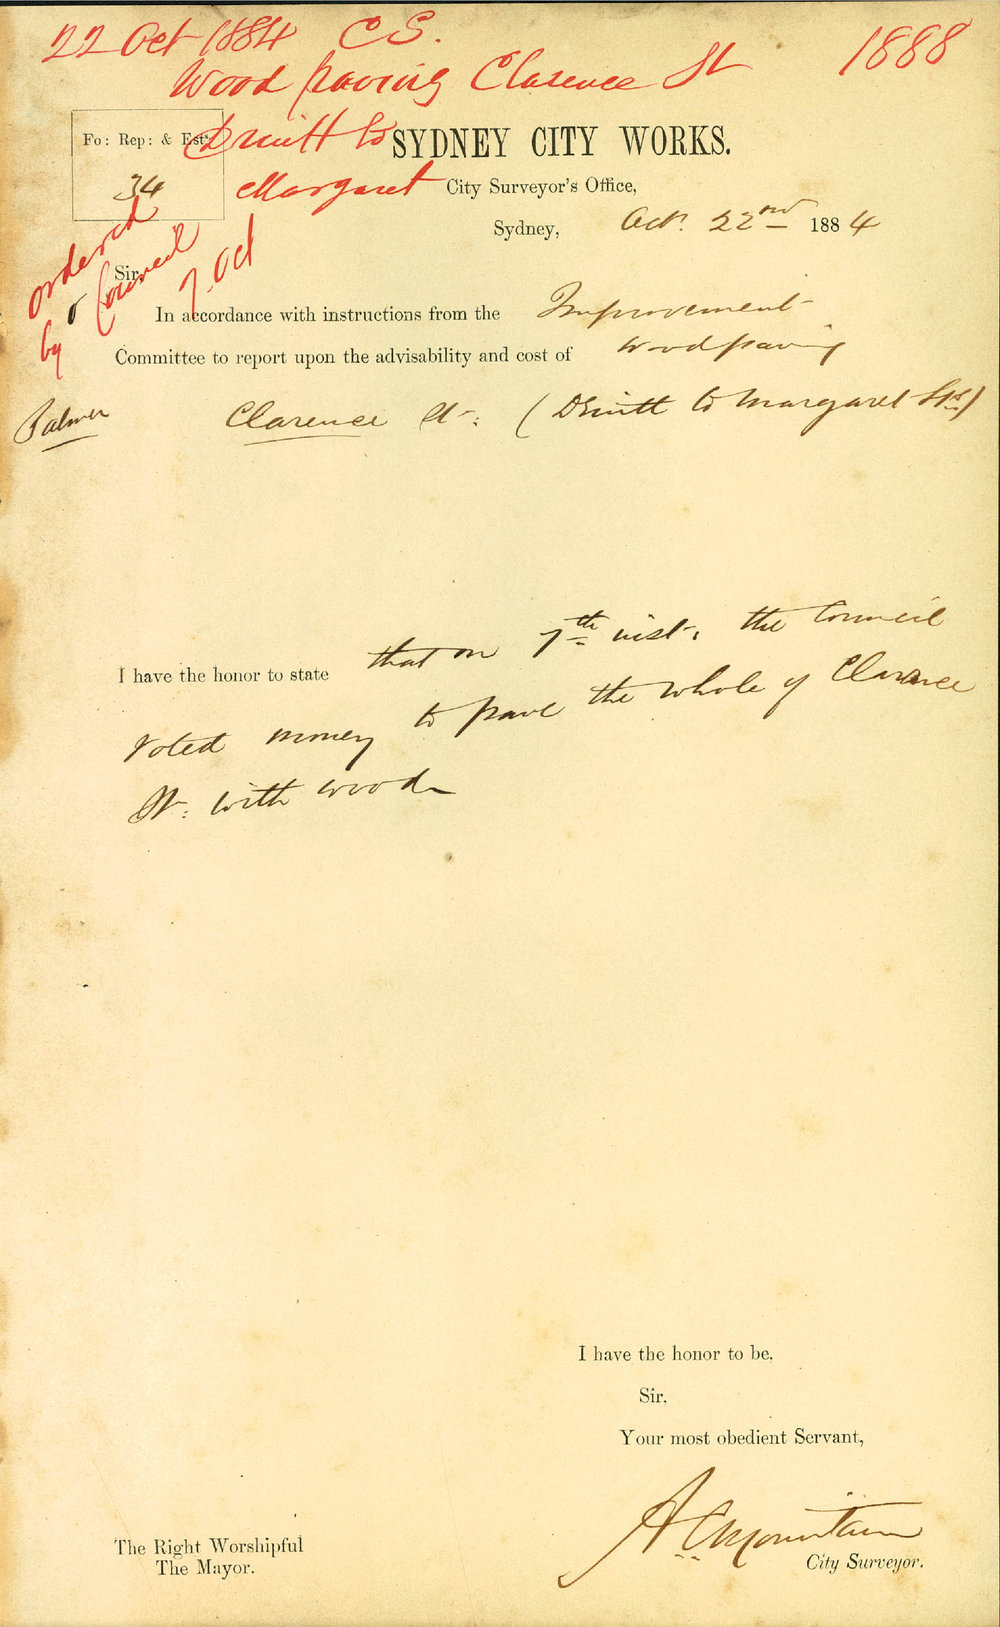 22 Oct 1884 C S. 1888
Wood paving Clarence St
Druitt to
Margaret
Fo: Rep: & Estt:
34
SYDNEY CITY WORKS.
City Surveyor's Office,
Sydney, Octr. 22nd 1884
ordered
by Council
7. Oct
Sir,
In accordance with instructions from the Improvement
Committee to report upon the advisability and cost of Woodpaving
Palmer
Clarence St: (Druitt to Margaret Sts)
I have the honor to state that on 7th inst. the Council
voted money to pave the whole of Clarence
St. with wood
I have the honor to be,
Sir,
Your most obedient Servant,
A C Mountain
City Surveyor.
The Right Worshipful
The Mayor.